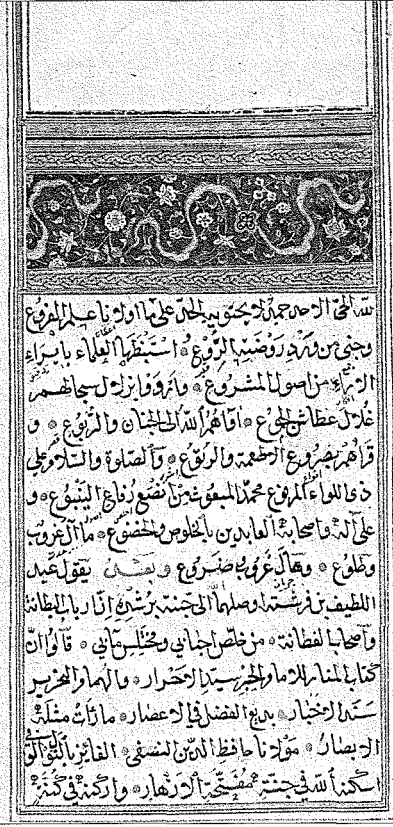 لله الحي الاحد حمد لا يحتويه الحد على ما اولانا علم الفروع
وجنى من ورد روضته الروع استنبطها العلماء بابراء
من اصول المشروع وارووا بزلال سجالهم
غلال عطاش الجوع اواهم الله الى الجنان والربوع و
قراهم بضروع الاطعمة والربوع والصلوة والسلام على
ذى اللواء المرفوع محمد المبعوث من الينبوع و
على آله واصحابه العابدين بالخلوص والخضوع ما آل غروب
وطلوع وهال غروب ضروع وبعد يقول عبد
اللطيف بن فرشته اوصلهما الى جنة برشده ان ارباب البطانة
واصحاب الفطانة من خلص احبابى ومختلس مآنى قالوا ان
كتاب المنار للامام الحبر سيد الاحرار والهمام النحرير
سند الاخبار بديع الفضل فى الاعصار ما رأت مثله
الابصار مولانا حافظ الدين النسفى الفائز بالتقى
اسكنه الله فى جنته مفتحة الازهار واركنه فى كنه